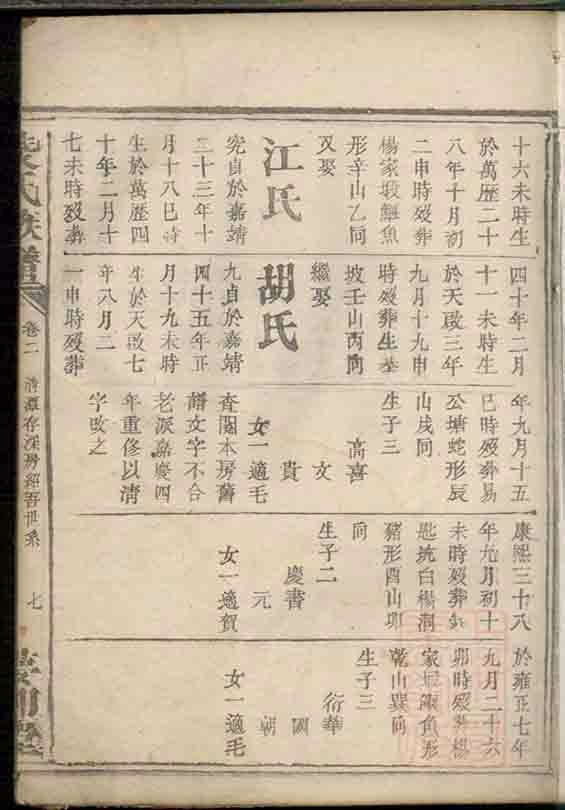 十六未時生
於萬歷二十
八年十月初
二申時歿葬
楊家塅鯉魚
形辛山乙向
又娶
江氏
究貞於嘉靖
二十三年十
月十八巳時
生於萬歷四
十年二月十
七未時歿葬
四十年二月
十一未時生
於天啟三年
九月十九申
時歿葬生基
坡壬山丙向
繼娶
胡氏
九貞於嘉靖
四十五年正
月十九未時
生於天啟七
年八月二
一申時歿葬
年九月十五
巳時歿葬易
公塘蛇形辰
山戌向
生子三
高喜
文
貴
女一適毛
查閱本房舊
譜文字不合
老派嘉慶四
年重修以清
字改之
康熙三十八
年九月初十
未時歿葬
匙坑白楊洞
豬形酉山卯
向
生子二
慶書
元
女一適賀
於雍正七年
九月二十六
卯時歿葬楊
家塅鯉魚形
乾山巽向
生子三
衍華
國
朝
女一適毛
氏族譜
卷二
清潭存深房經吾世系
七